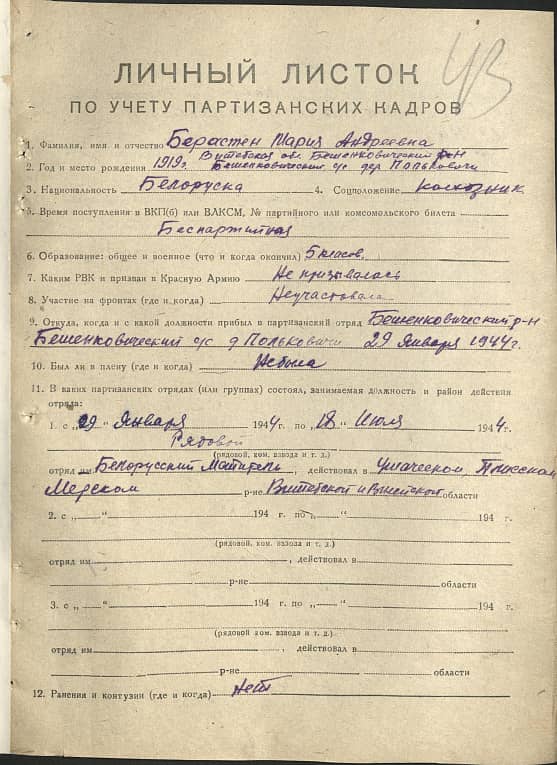 43
ЛИЧНЫЙ ЛИСТОК
ПО УЧЕТУ ПАРТИЗАНСКИХ КАДРОВ
1. Фамилия, имя и отчество Берастен Мария Андреевна
Витебская обл. Бешенковический р-н
2. Год и место рождения 1919г. Бешенковический с/с дер Польковичи
3. Национальность Белоруска 4. Соцположение колхозник
5. Время поступления в ВКП(б) или ВЛКСМ, № партийного или комсомольского билета
Беспартийная
6. Образование: общее и военное (что и когда окончил) 5 класов.
7. Каким РВК и призван в Красную Армию Не призывалась
8. Участие на фронтах (где и когда) Неучаствовала
9. Откуда, когда и с какой должности прибыл в партизанский отряд Бешенковический р-н
Бешенковический с/с д Польковичи 29 января 1944г.
10. Был ли в плену (где и когда) Небыла
11. В каких партизанских отрядах (или группах) состоял, занимаемая должность и район действия
отряда:
1. с „29" Января 1944г. по „18" Июля 1944г.
Рядовой
(рядовой, ком. взвода и т. д.)
отряд им Белорусский Мститель, действовал в Ушаческом,
Мерском р-не Витебской и области
2. с „ " 194 г. по „ " 194 г.
(рядовой, ком. взвода и т. д.)
отряд им , действовал в
р-не области
3. с „ " 194 г. по „ " 194 г.
(рядовой ком. взвода и т. д.)
отряд им , действовал в
р-не области
12. Ранения и контузии (где и когда) Нет